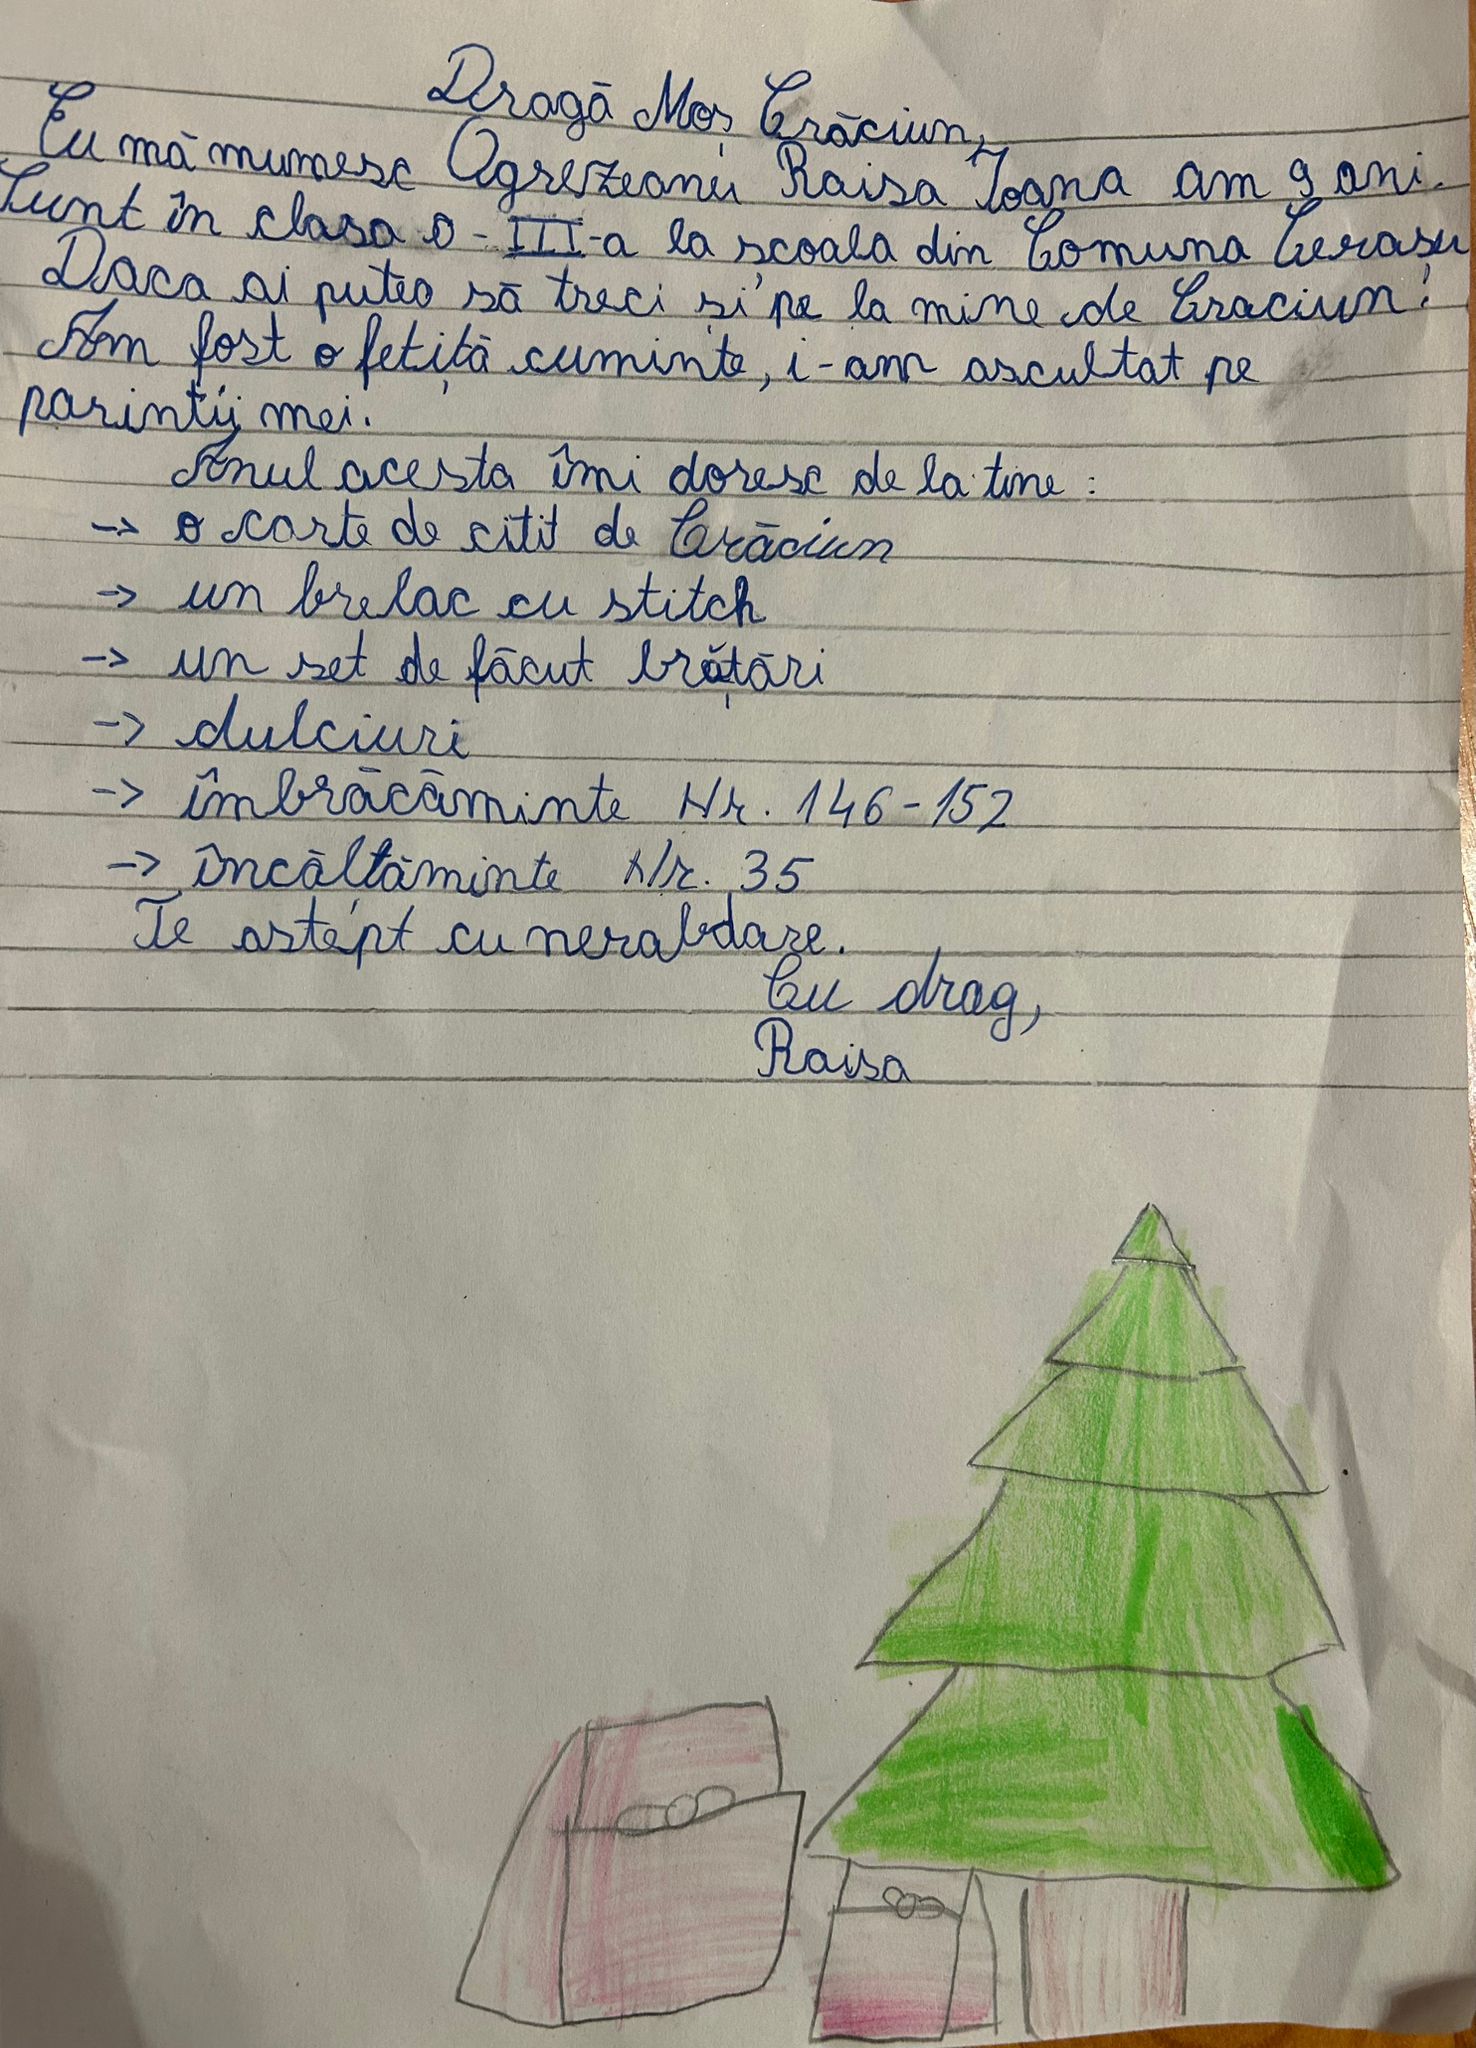 Dragă Moș Crăciun,
Eu mă numesc Ogrezeanu Raisa Ioana am 9 ani.
Sunt în clasa a-III-a la scoala din Comuna Cerasu
Daca ai putea să treci și pe la mine de Craciun!
Am fost o fetiță cuminte, i-am ascultat pe
parintii mei.
Anul acesta îmi doresc de la tine:
-> o carte de citit de Crăciun
-> un brelac cu stitch
-> un set de făcut brățări
-> dulciuri
-> îmbrăcăminte Nr. 146-152
-> încăltăminte Nr. 35
Te astept cu nerabdare.
Cu drag,
Raisa